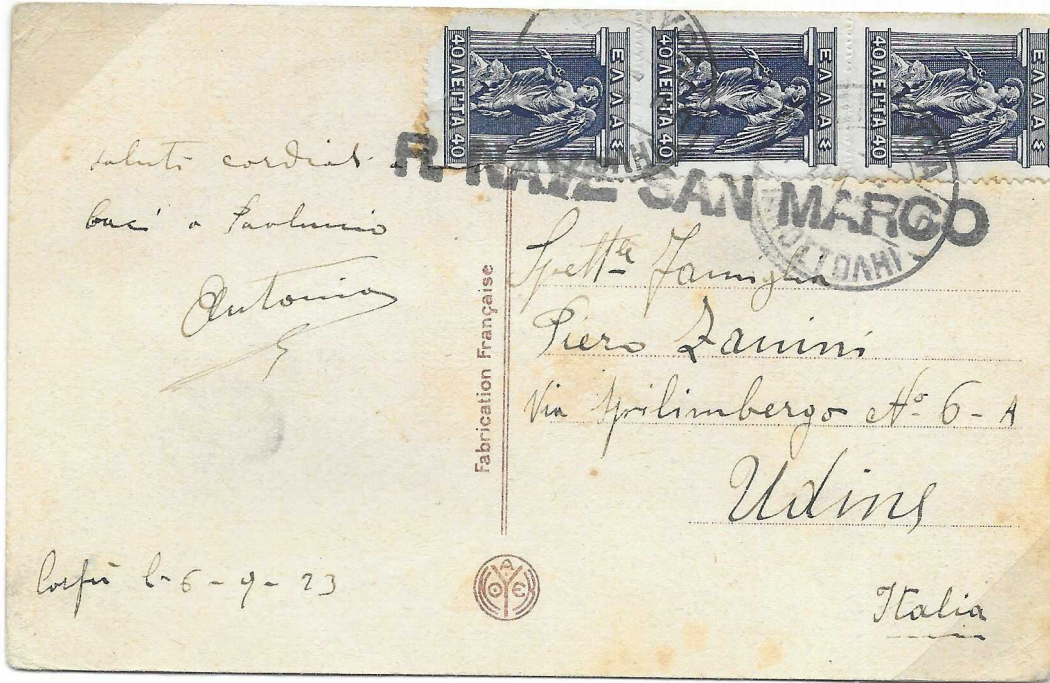 ΕΛΛΑΣ
40 ΛΕΠΤΑ 40
ΕΛΛΑΣ
40 ΛΕΠΤΑ 40
ΕΛΛΑΣ
40 ΛΕΠΤΑ 40
R. NAVE SAN MARCO
saluti cordiali e
baci a Paolinio
Antonio
Corfù l. 6 - 9 - 23
Fabrication Française
Spett.le Famiglia
Piero Zanini
Via Spilimbergo No. 6 - A
Udine
Italia